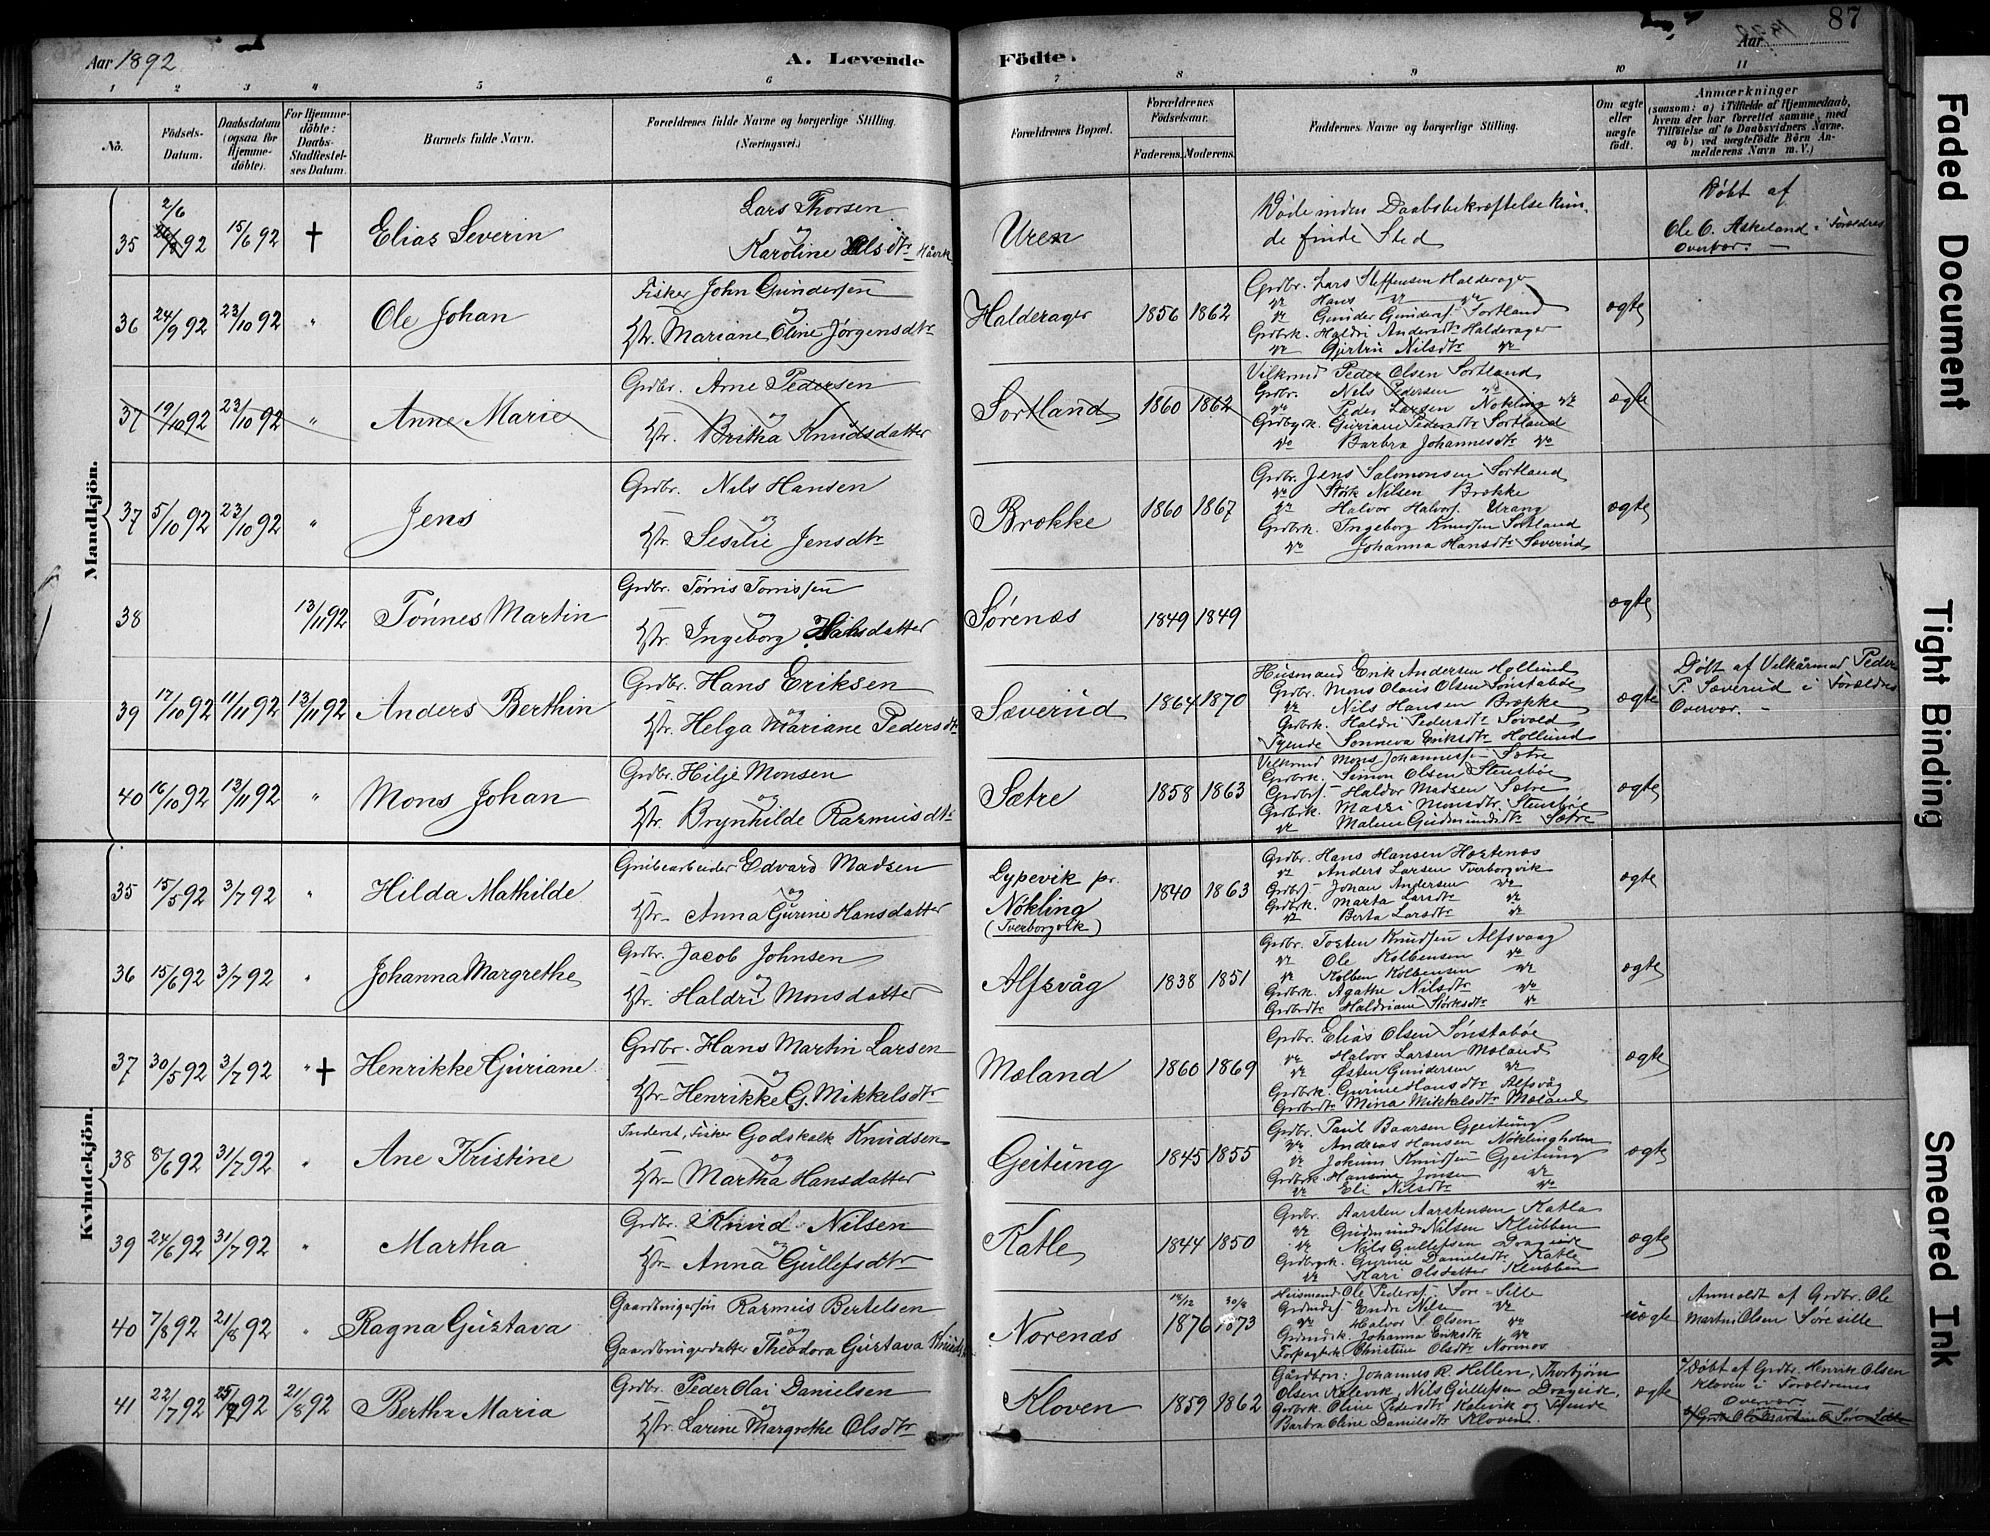 87
Aar 1892
A. Levende Födte.
Aar
1 2 3 4 5 6 7 8 9 10 11
No.
Födsels-Datum.
Daabsdatum (ogsaa for Hjemme-döbte).
For Hjemme-döbte: Daabs-Stadfæstel-ses Datum.
Barnets fulde Navn.
Forældrenes fulde Navne og borgerlige Stilling. (Næringsvei.)
Forældrenes Bopæl.
Forældrenes Födselsaar.
Faderens. Moderens.
Faddernes Navne og borgerlige Stilling.
Om ægte eller uægte födt.
Anmærkninger
(saasom: a) i Tilfælde af Hjemmedaab, hvem der har forrettet samme, med Tilföielse af to Daabsvidners Navne. og b) ved uægtefödte Börn An-melderens Navn m. V.)
Mandkjön.
35 2/6 92 15/6 92 † Elias Severin
Lars Thorsen
og
Karoline Olsdtr
Uren
Döde inden Daabsbekræftelse kun-
de finde Sted
Döbt af
Ole O. Askeland i Forældres
Overvær. —
36 24/9 92 23/10 92 " Ole Johan
Fisker John Gundersen
og
Hstr. Mariane Oline Jørgensdtr
Halderager 1856 1862
Grdbr. Lars Steffensen Halderager
do Hans do do
do Gunder Gunders. Sortland
Grdbrk. Haldri Andersdtr Halderager
do Gjertru Nilsdtr do
ægte
37 19/10 92 23/10 92 " Anne Marie
Grdbr. Arne Pedersen
og
Hstr. Britha Knudsdatter
Sortland 1860 1862
Vilkrmd Peder Olsen Sortland
Grdbr. Nels Pedersen do
do Peder Larsen Nøkling do
Grdbrk. Guriane Pedersdtr Sortland
do Barbra Johannesdtr do
ægte
37 5/10 92 23/10 92 " Jens
Grdbr. Nils Hansen
og
Hstr. Sesilie Jensdtr
Brække 1860 1867
Grdbr. Jens Salomonsen Sortland
do Størk Nilsen Brække
do Halvor Halvors. Urang
Grdbrk. Ingeborg Knudsen Sortland
do Johanna Hansdtr Sæverud
ægte
38 13/11 92 Tønnes Martin
Grdbr. Tørris Torrissen
og
Hstr. Ingeborg Hansdatter
Sørenæs 1849 1849
ægte
39 17/10 92 11/11 92 13/11 92 Anders Berthin
Grdbr. Hans Eriksen
og
Hstr. Helga Mariane Pedersdtr
Sæverud 1864 1870
Husmand Erik Andersen Hollund
Grdbr. Mons Olaus Olsen Sønstabøe
do Nils Hansen Brække
Grdbrk. Haldri Pedersdtr Søvold
Tjende Sønneva Eriksdtr Hollund
ægte
Döbt af Vilkårmd Peder
P. Sæverud i Forældres
Overvær. —
40 16/10 92 13/11 92 " Mons Johan
Grdbr. Hilje Monsen
og
Hstr. Brynhilde Rasmusdtr
Sætre 1858 1863
Vilkrmd Mons Johannessen Sætre
Grdbrk. Simon Olsen Stensbøe
Grdbrs. Haldor Madsen Sætre
Grdbrk. Massi Monsdtr. Stensbøe
do Malene Gudmundsdtr Sætre
ægte
Kvindekjön.
35 15/5 92 3/7 92 " Hilda Mathilde
Grubearbeider Edvard Madsen
og
Hstr. Anna Gurine Hansdatter
Dypevik pr.
Nøkling
(Tverborgvik)
1840 1863
Grdbr. Hans Hansen Hestenæs
do Anders Larsen Tverborgvik
Grdbrs. Johan Andersen do
Grdbrk. Marta Larsdtr do
do Berta Larsdtr do
ægte
36 15/6 92 3/7 92 " Johanna Margrethe
Grdbr. Jacob Johnsen
og
Hstr. Haldri Monsdatter
Alfsvåg 1838 1851
Grdbr. Tosten Knudsen Alfsvaag
do Ole Kolbensen do
do Kolben Kolbensen do
Grdbrk. Agathe Nilsdtr do
Grdbrdtr Haldriane Størksdtr do
ægte
37 30/5 92 3/7 92 " † Henrikke Guriane
Grdbr. Hans Martin Larsen
og
Hstr. Henrikke G. Mikkelsdtr
Mæland 1860 1869
Grdbr. Elias Olsen Sønstabøe
do Halvor Larsen Mæland
do Østen Gundersen do
Grdbrk. Gurine Hansdtr Alfsvåg
Grdbrdtr Mina Mikkelsdtr Mæland
ægte
38 8/6 92 31/7 92 " Ane Kristine
Inderst, Fisker Godskalk Knudsen
og
Hstr. Martha Hansdatter
Geitung 1845 1855
Grdbr. Paul Baarsen Gjeitung
do Andreas Hansen Nøklingholm
do Jokum Knudsen Gjeitung
Grdbrk. Hansine Jonsen do
do Eli Nilsdtr do
ægte
39 24/6 92 31/7 92 " Martha
Grdbr. Knud Nilsen
og
Hstr. Anna Gullefsdtr
Katle 1844 1850
Grdbr. Aarsten Aarstensen Katla
do Gudmund Nilsen Klubben
do Nils Gullefsen Drageide
Grdbrk. Gurine Danielsdtr Katle
do Kari Olsdatter Klubben
ægte
40 7/8 92 21/8 92 " Ragna Gustava
Gaardbrugersøn Rasmus Bertelsen
og
Gaardbrugerdatter Theodora Gustava
Norenæs 18/12 1876 30/8 1873
Husmand Ole Peders. Søre-Sille
do Halvor Olsen do
Johanna Eriksdtr do
Christine Olsdtr Norenæs
uægte
Anmeldt af Grdbr. Ole
Martin Olsen Søre sille
41 22/7 92 25/7 92 21/8 92 Bertha Maria
Grdbr. Peder Olai Danielsen
Hstr. Larine Margrethe Olsdtr
Kloven 1859 1862
Gårdbrn: Johannes R. Hellen, Thorbjørn
Olsen Kalevik, Nils Gullefsen Drageide,
Grdbrk. Oline Pedersdtr Kalevik og Tjende
Barbra Oline Danielsdtr Kloven.
ægte
Döbt af Grdbr. Henrik Olsen
Kloven i Forældrenes
Overvær.
Faded Document
Tight Binding
Smeared Ink